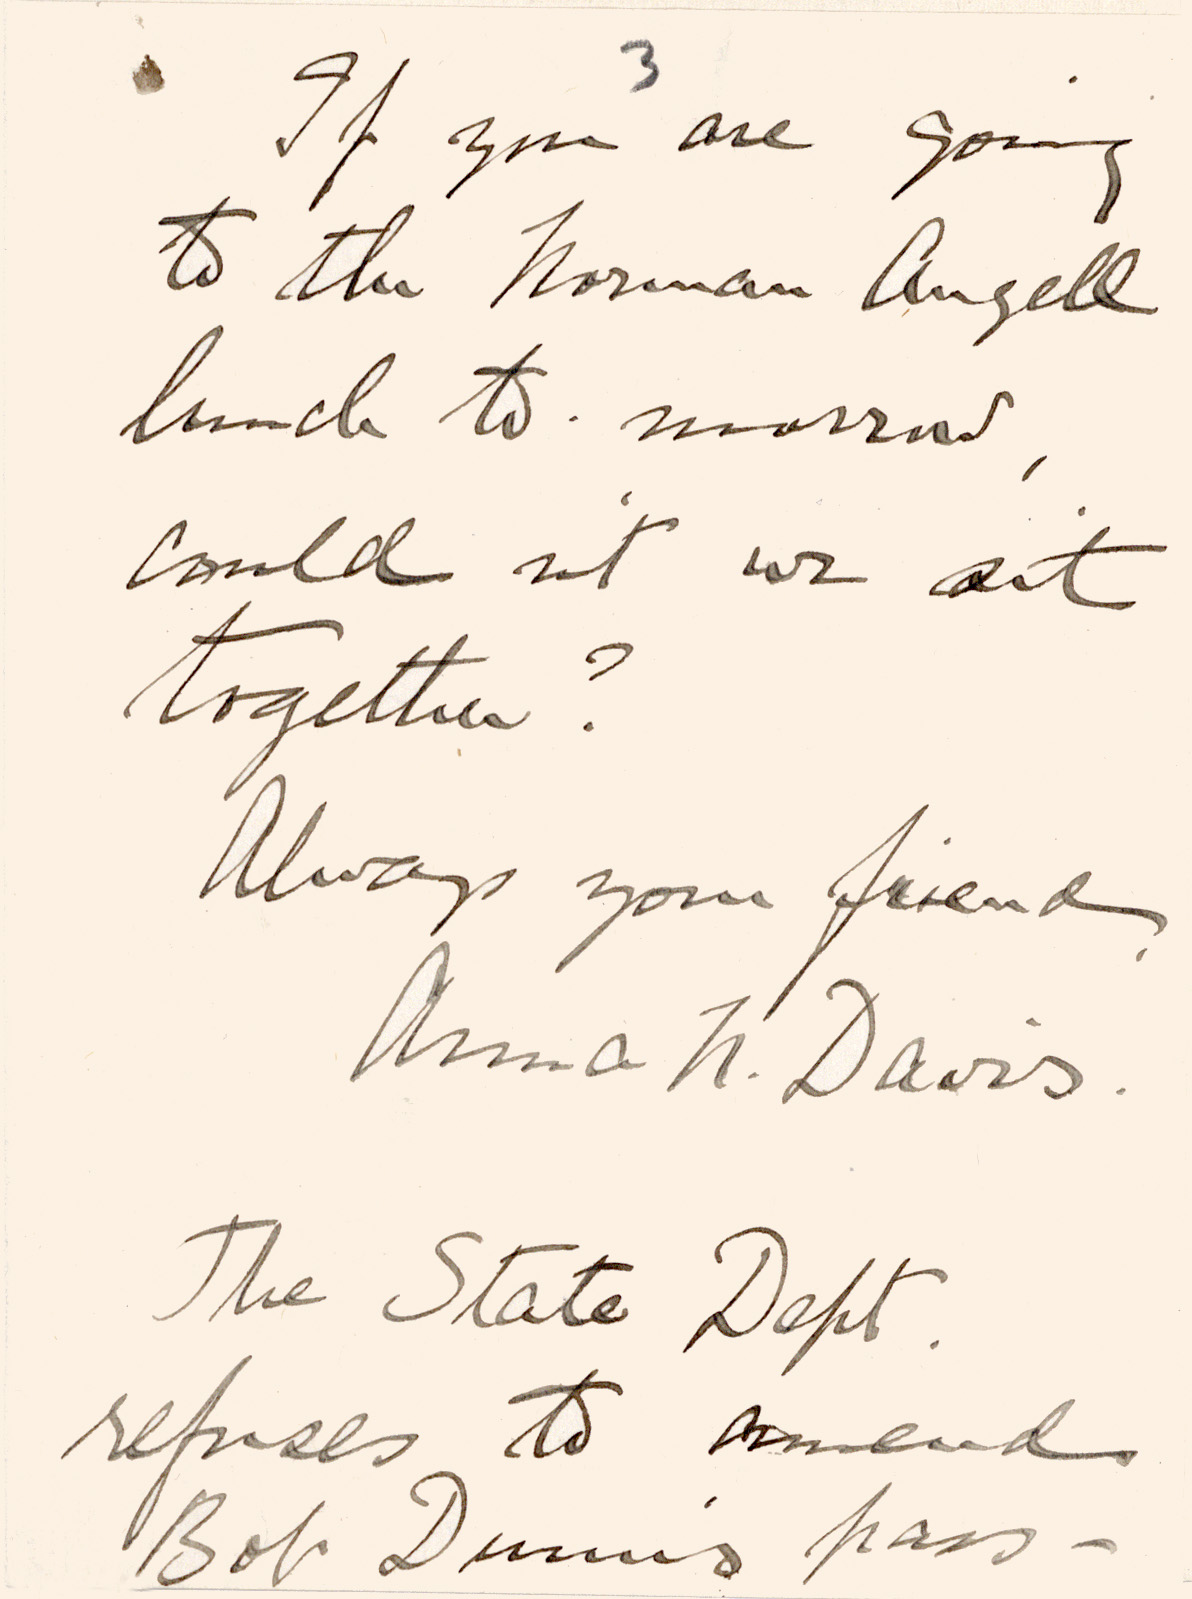 3
If you are going
to the Norman Angell
lunch to-morrow,
could n't we sit
together?
Always your friend,
Anna N. Davis.
The State Dept.
refuses to amend
Bob Dunn's pass-